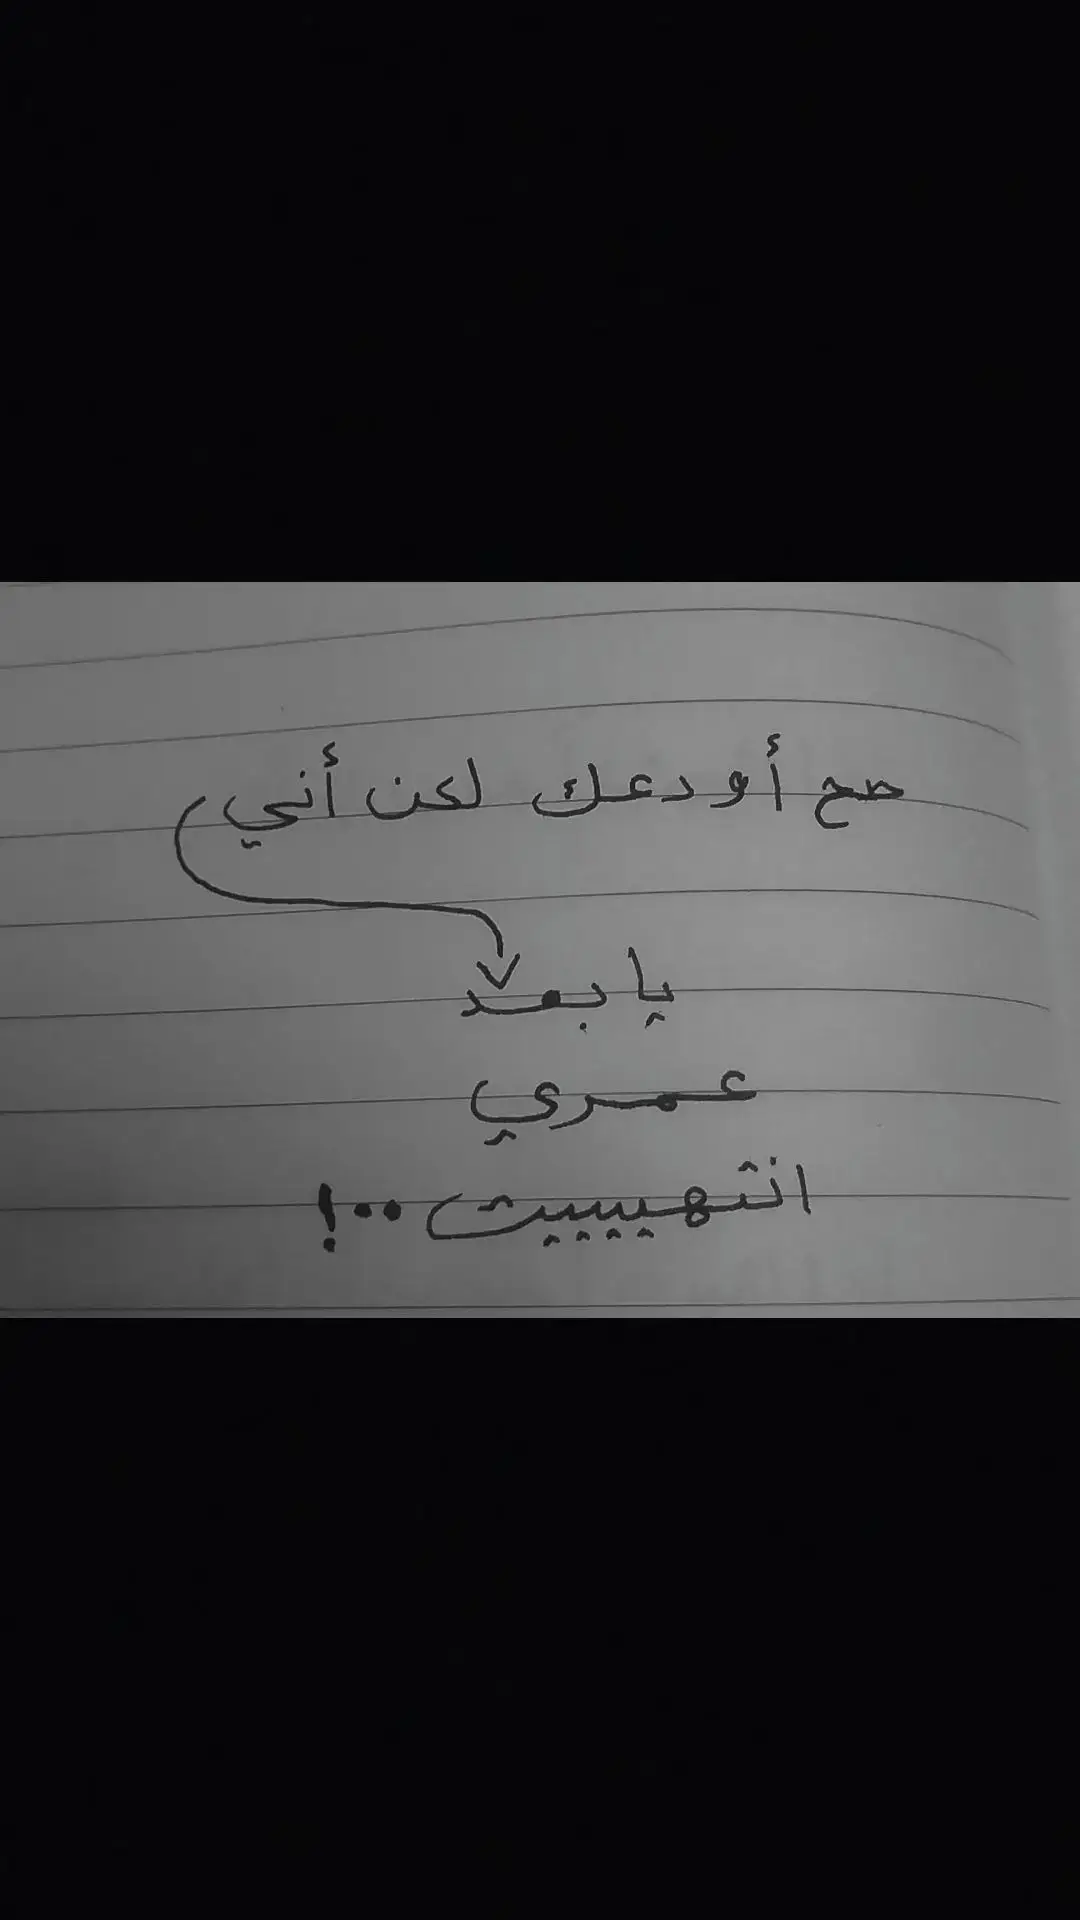 صح أودعك لكن أني
يا بعد
عمري
انتهيييت..!